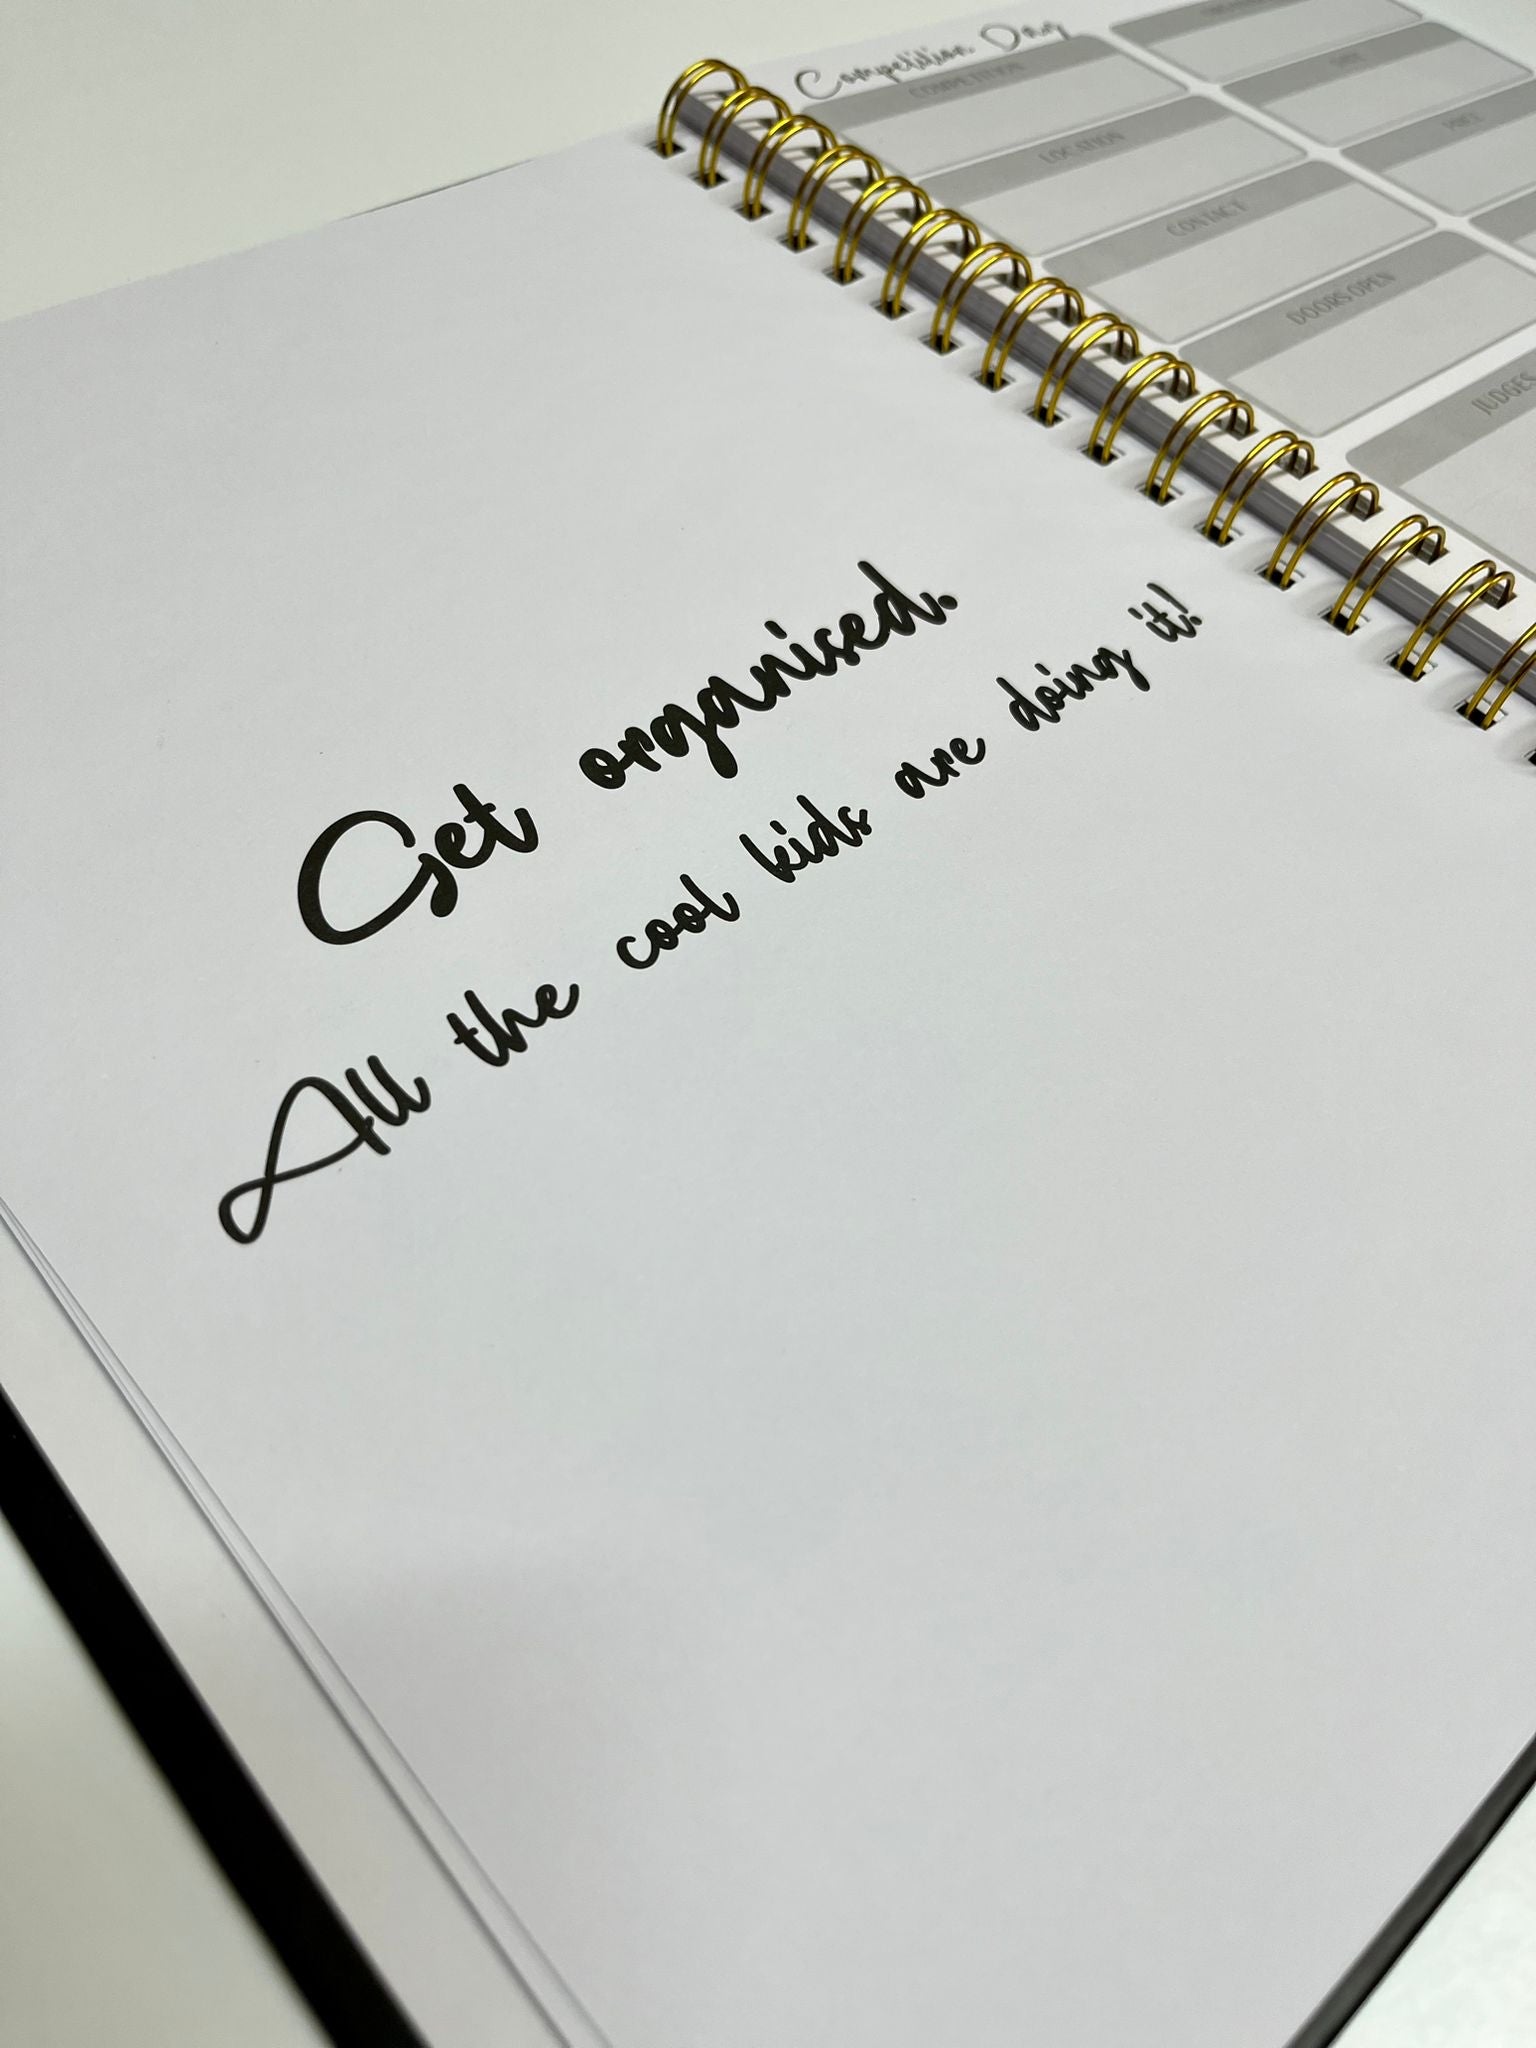 Get organised.
All the cool kids are doing it!
Competition Day
COMPETITION
LOCATION
CONTACT
DOORS OPEN
JUDGES
PRICE